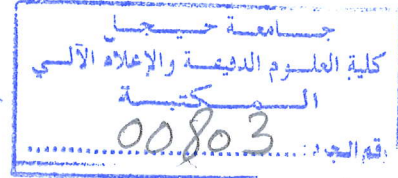 جامعة جيجل
كلية العلوم الدقيقة والإعلام الآلي
المكتبة
رقم الجرد: 00803